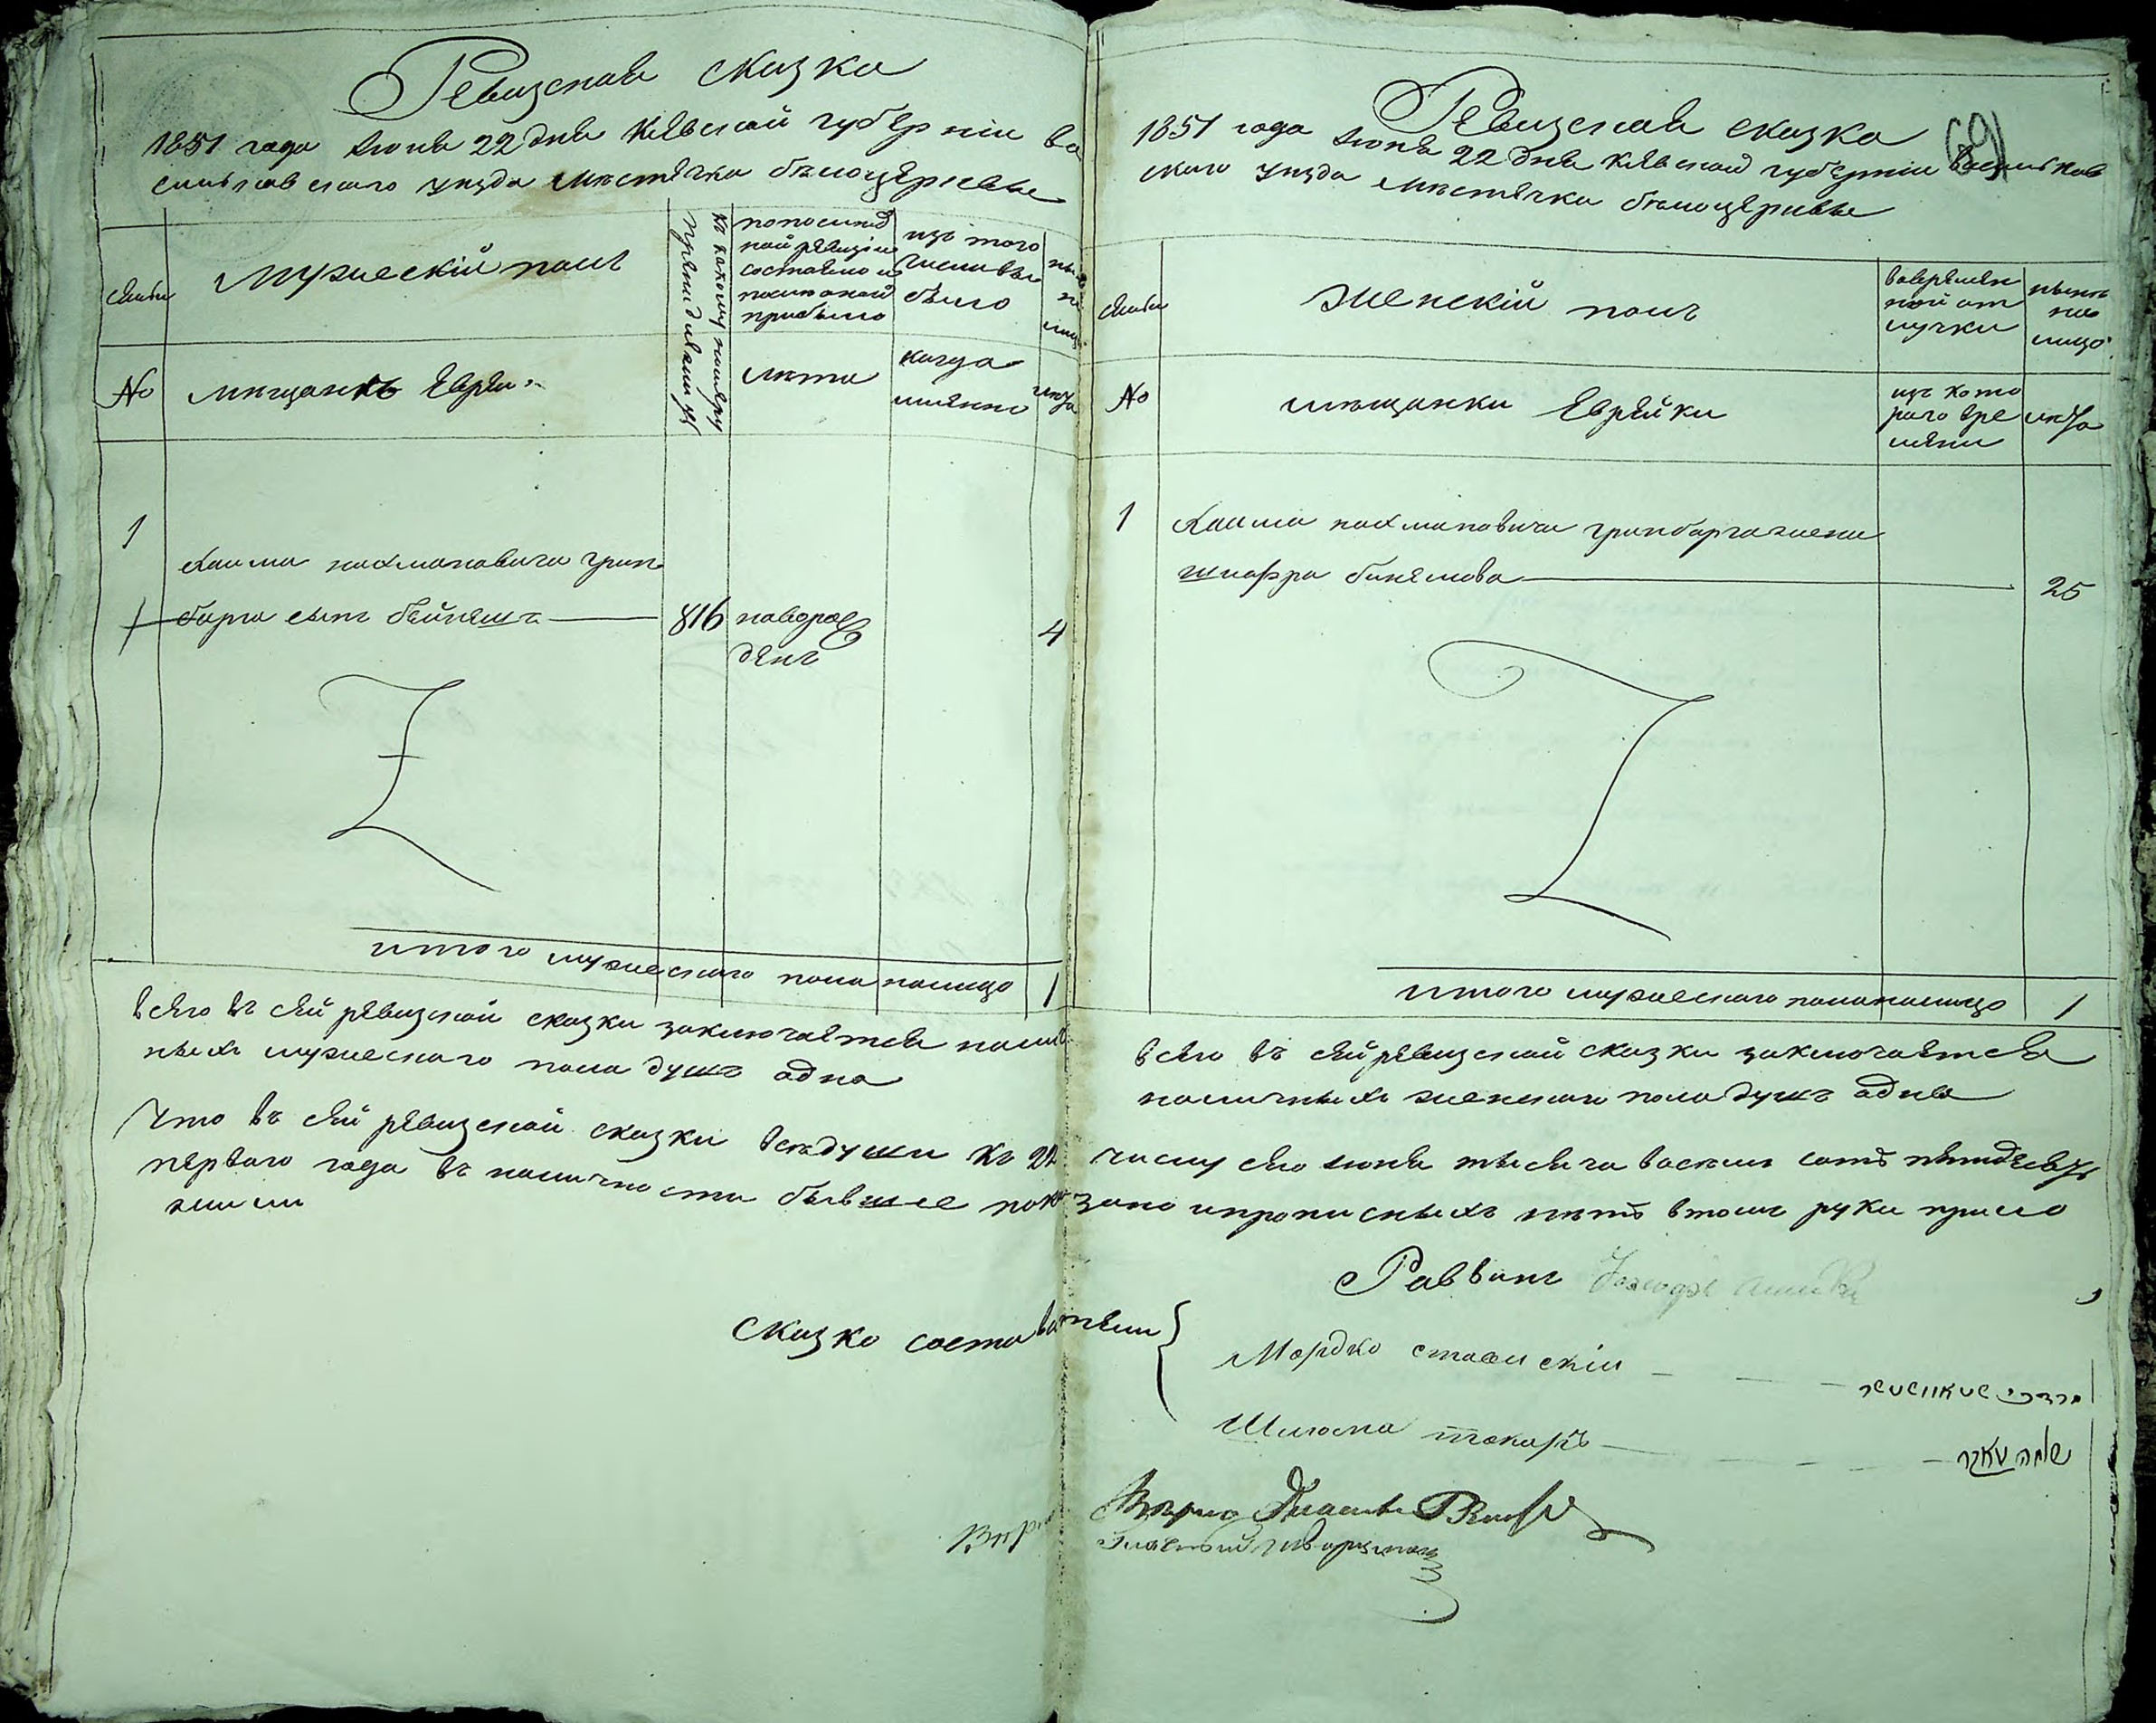 Ревизская сказка
1851 года Июня 22 дня Киевской губернии Ва
сильковского уезда местечка белоцерквы
семьи
Мужеский полъ
къ какому нумеру
принадлежитъ
по послед
ней ревизіи
состояло и
после оной
прибыло
изъ того
числа вы
было
ны
не
лицо
№
мещанъ Евреи
лета
когда
именно
лета
1
Хаима нахмановича грин
барга сынъ бейнешъ
816
новорож
денъ
4
итого мужеского пола налицо 1
всего въ сей ревизской сказки заключается налич
ныхъ мужеского пола душъ одна
Ревизская сказка
69
1851 года Июня 22 дня Киевской губернии Васильков
ского уезда местечка белоцерквы
семьи
женскій полъ
вовремян
ной от
лучки
ныне
на
лицо
№
мещанки Еврейки
изъ кото
раго вре
мени
лета
1 Хаима нахмановича гринбарга жена
шифра бинемова 25
итого мужеского пола налицо 1
всего въ сей ревизской сказки заключается
наличныхъ женскаго пола душъ одна
Что въ сей ревизской сказки все души къ 22 числу сего Июня тысяча восемь сотъ пятдесятъ
перваго года въ наличности бывшее показано и прописныхъ нетъ в томъ руки прило
жили
Раввинъ
Сказко составители
Мордко ставискіи
מרדכי סטאוויסקי
Шлиома токаръ
שלמה טאקר